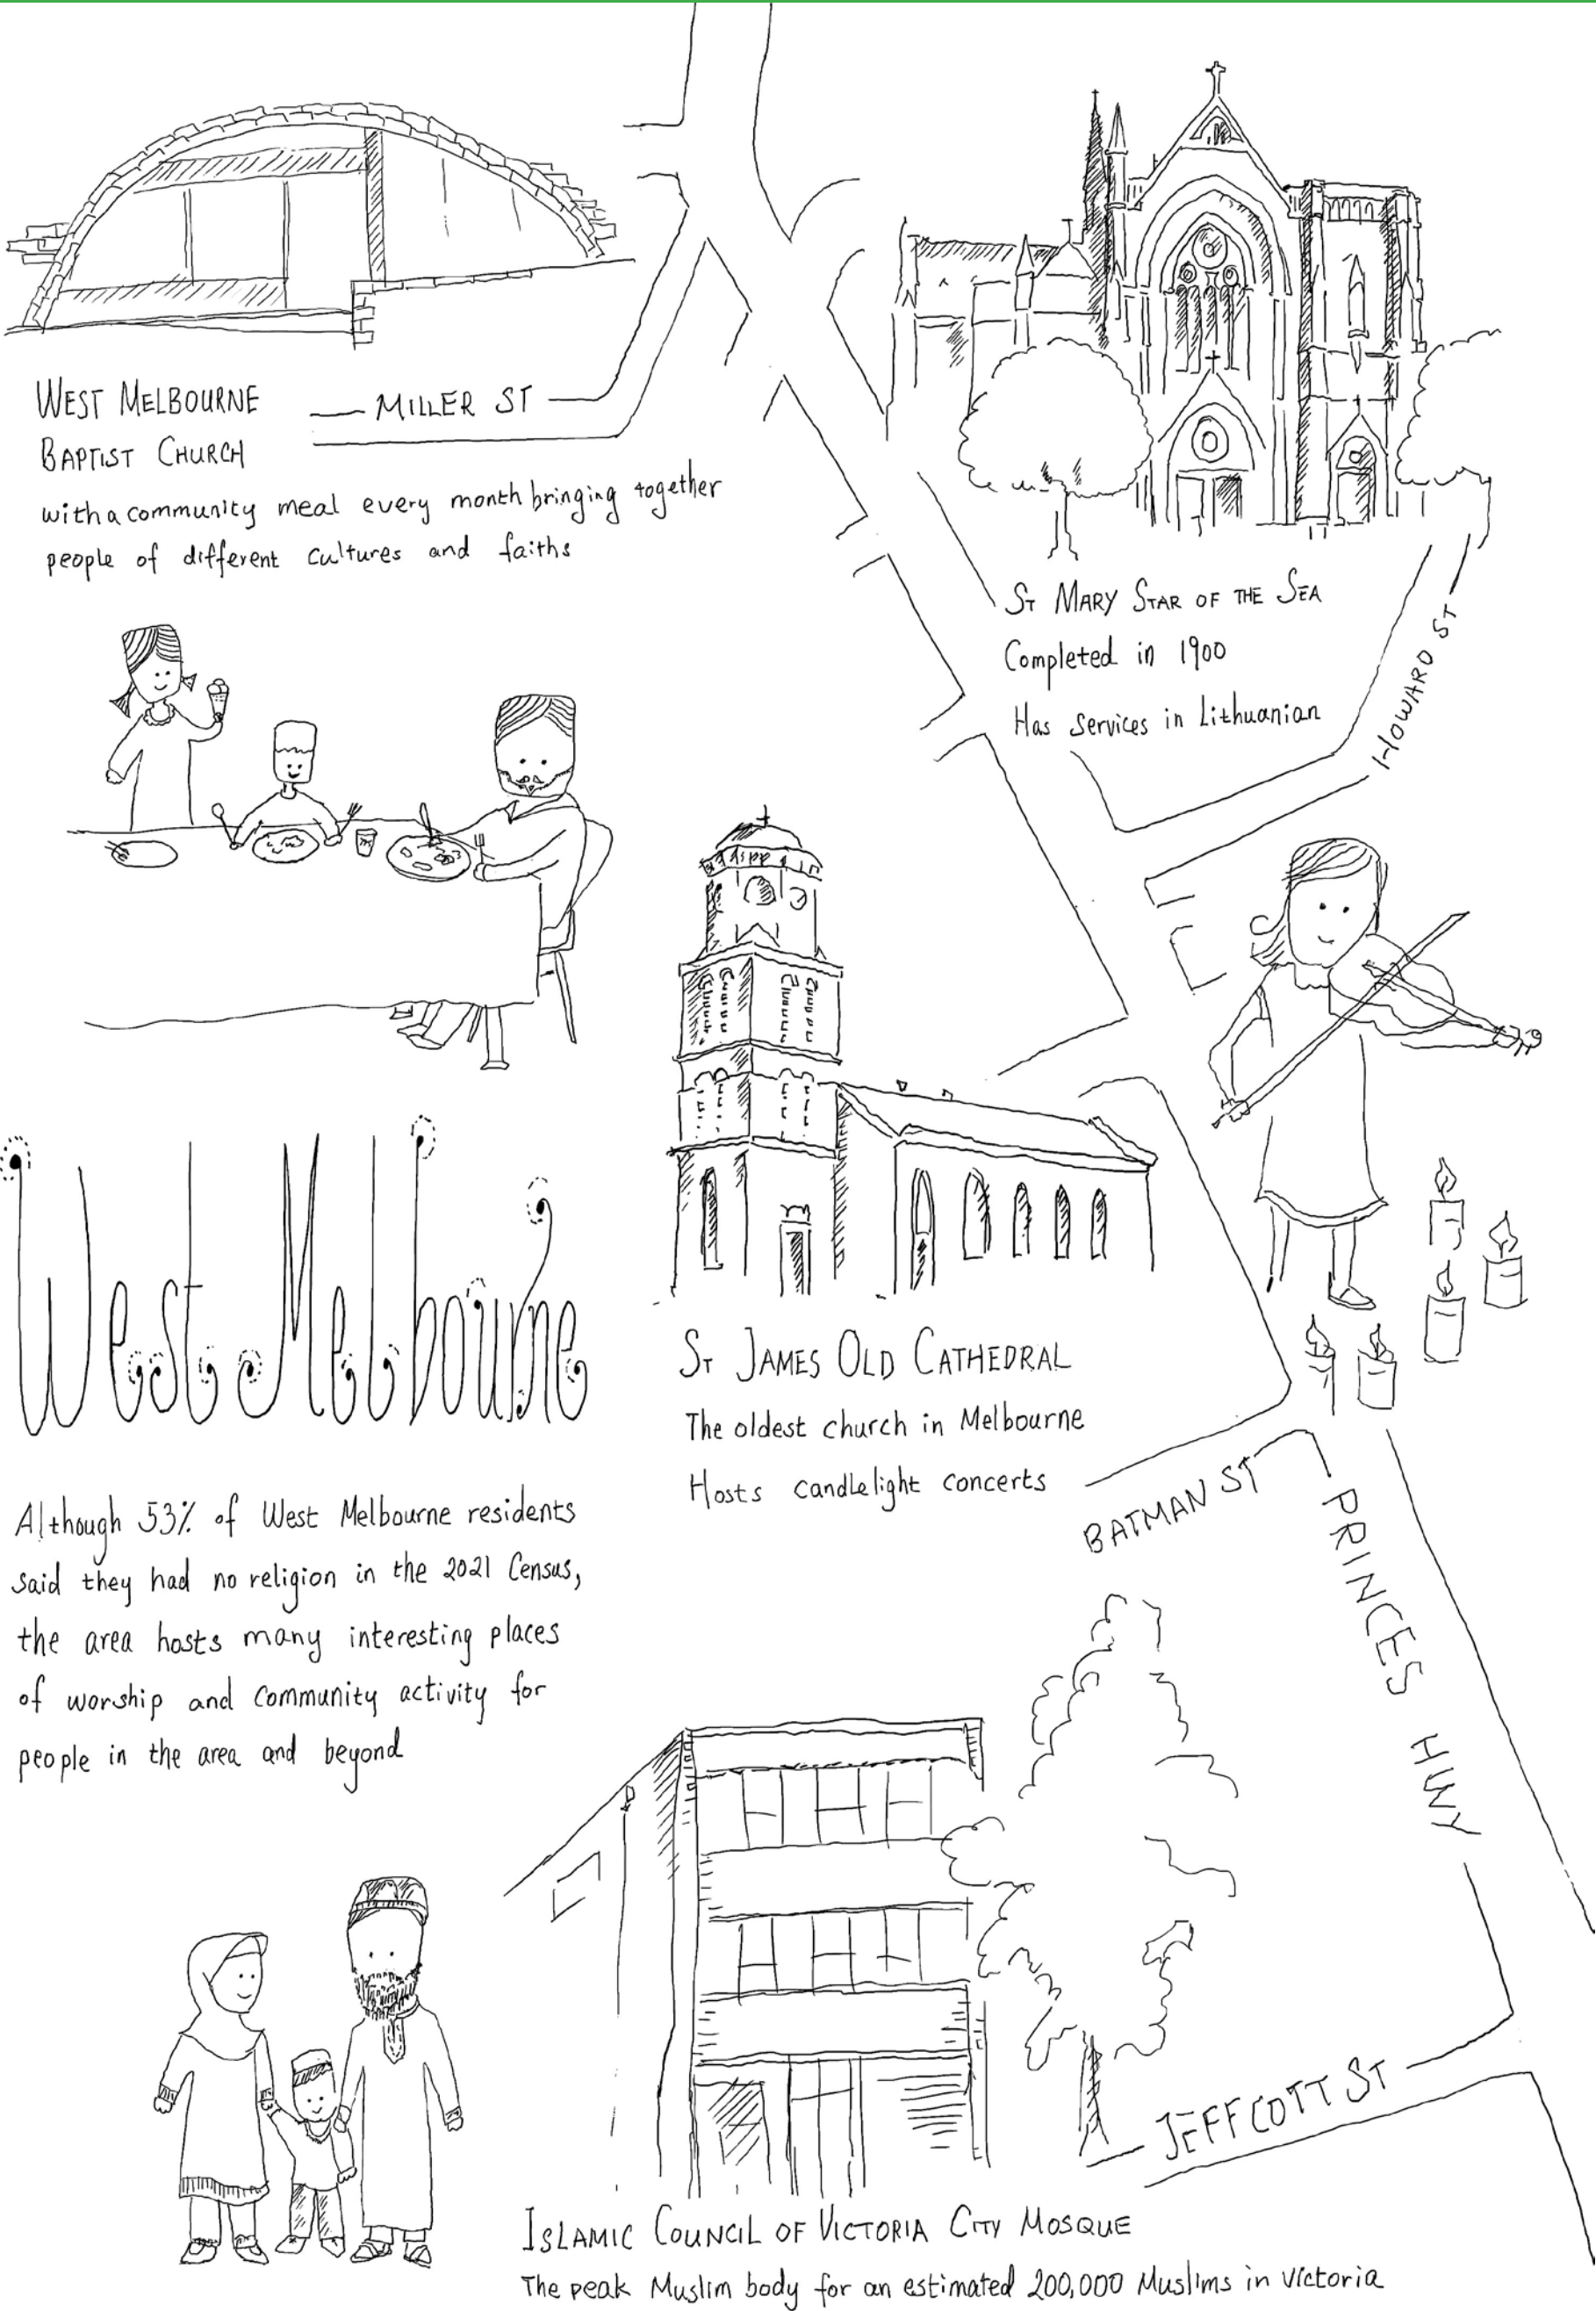 WEST MELBOURNE
BAPTIST CHURCH
with a community meal every month bringing together
people of different cultures and faiths
MILLER ST
ST MARY STAR OF THE SEA
Completed in 1900
Has services in Lithuanian
HOWARD ST
West Melbourne
Although 53% of West Melbourne residents
said they had no religion in the 2021 Census,
the area hosts many interesting places
of worship and community activity for
people in the area and beyond
ST JAMES OLD CATHEDRAL
The oldest church in Melbourne
Hosts candlelight concerts
BATMAN ST
PRINCES HWY
JEFFCOTT ST
ISLAMIC COUNCIL OF VICTORIA CITY MOSQUE
The peak Muslim body for an estimated 200,000 Muslims in Victoria